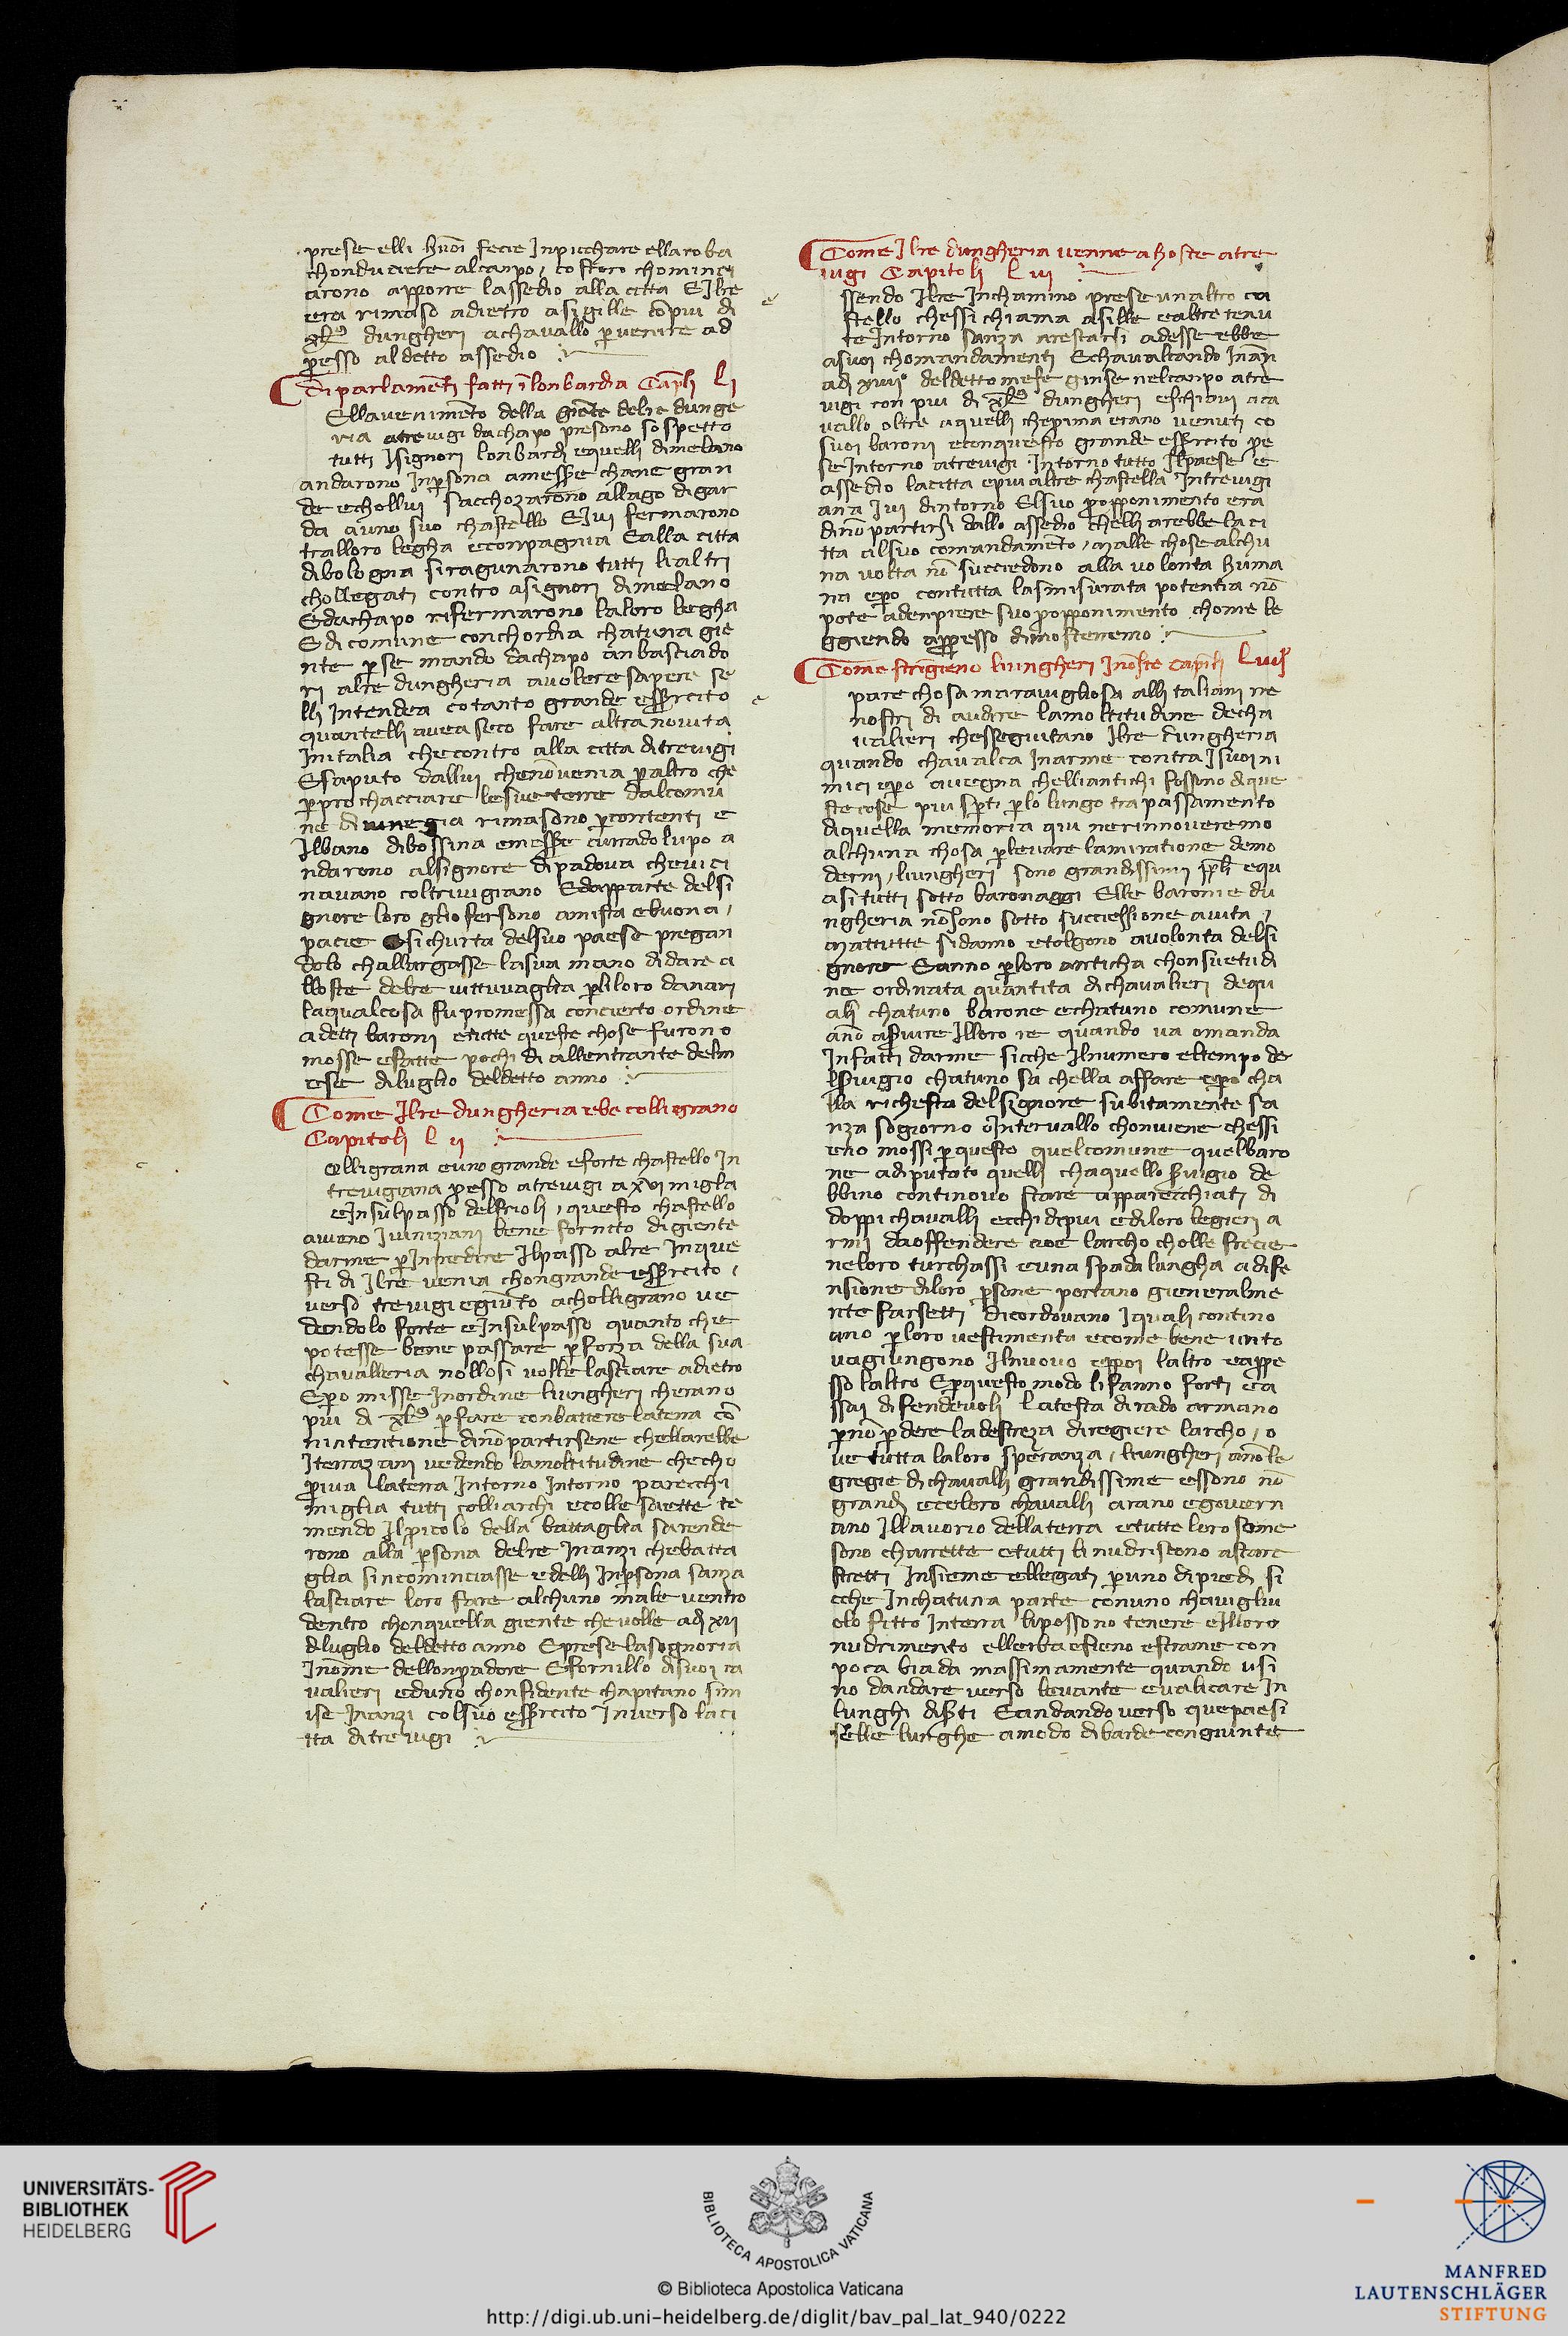 prese elli huoi fecie Inpicchare ella roba
chonduciere alcanpo, costoro chominci
arono apporre lassedio alla citta E Ilre
era rimaso adietro asigille cō piu di
dungheri achavallo p venire ad
presso aldetto assedio
Di parlamēti fatti ī lonbardia Capitoli Li
Ellavenimēto della giēte delre dunge
ria atrevigi dachapo presono sospetto
tutti Isignori lonbardi equelli dimelano
andarono Inpsona amesser chane gran
de echollui sacchozarono allago digar
da auno suo chastello E Iui fermarono
tralloro legha econpagnia Ealla citta
dibologna siragunarono tutti lialtri
chollegati contro asignori dimelano
Edachapo rifermarono laloro legha
Edi comune conchordia chatuna gie
nte p se mando dachapo anbasciado
ri alre dungheria avolere sapere se
lli Intendea cotanto grande esercito
quantelli avea seco fare altra novita
Initalia checontro alla citta ditrevigi
Esaputo dallui chenō venia p altro che
p prochacciare lesue terre dalcomu
ne di vinegia rimasono p contenti e
Ilbano dibossina emesser currado lupo a
ndarono alsignore dipadova chevici
navano coltrivigiano Edapparte delsi
gnore loro gliofersono amista ebuona,
pacie sichurta delsuo paese pregan
dolo challargasse lasua mano didare a
lloste delre vittuvaglia pliloro danari
laqualcosa fu promessa concierto ordine
adetti baroni etutte queste chose furono
mosse efatte pochi di allentrante delm
ese diluglio deldetto anno
Come Ilre dungheria ebe colligrano
Capitoli L ii
Olligrana euno grande eforte chastello In
trevigiana presso atrevigi a xvi miglia
eInsulpasso delfrioli, questo chastello
aveno Iviniziani bene fornito digiente
darme p Inpedire Ilpasso alre Inque
sti di Ilre venia chongrande esercito,
verso trevigi egiūto acholligrano ve
dendolo forte eInsulpasso quanto che
potesse bene passare p forza della sua
chavalleria nollosi volle lasciare adietro
Epo misse Inordine liungheri cherano
piu di p fare conbattere laterra cō
nintentione dinō partirsene chellarebbe
Iterrazani vedendo lamoltitudine checho
priva laterra Intorno Intorno parecchi
miglia tutti colliarchi ecolle saette te
mendo Ilpicolo della battaglia sarende
rono alla psona delre Inanzi chebatta
glia sincominciasse edelli Inpsona sanza
lasciare loro fare alchuno male ventro
dentro chonquella giente chevolle adi xii
diluglio deldetto anno Eprese lasignoria
Inome dellonpadore Efornillo disuoi ca
valieri eduno chonfidente chapitano sim
ise Inanzi colsuo esercito Inverso laci
tta ditrevigi
Come Ilre dungheria venne a hoste atre
vigi Capitoli L iii
ssendo Ilre Inchamino prese unaltro ca
stello chessi chiama asille ealtre tenu
te Intorno sanza arestarsi adesse ebbe
asuoi chomandamenti Echavalcando Inan
adi xviiii deldetto mese giuse nelcanpo atre
vigi con piu di dungheri eschiavi aca
vallo oltre aquelli chep̄ima erano venuti co
suoi baroni econquesto grande esercito po
se Intorno atrevigi Intorno tutto Ilpaese e
assedio lacitta epiu altre chastella Intrevigi
ana Iui dintorno Elsuo propponimento era
dinō partirsi dallo assedio chelli arebbe laci
tta alsuo comandamēto, Malle chose alchu
na volta nō succiedono alla volonta huma
na epo contutta lasmisurata potentia nō
pote adenpiere suo propponimento chome le
ggiendo appresso dimosterremo
Come stringieno liungheri Inoste Capitoli
pare chosa maravigliosa alli taliani ne
nostri di audire lamoltitudine decha
valieri chesseguitano Ilre dungheria
quando chavalca Inarme contra Isuoi ni
mici epo avegna chelliantichi fossono dique
ste cose piu sperti p lo lungo trapassamento
diquella memoria qui nerinnoveremo
alchuna chosa p levare lamiratione demo
derni, liungheri sono grandissimi equ
asi tutti sotto baronaggi Elle baronie du
ngheria nōsono sotto successione avita,
Mattutte sidanno etolgono avolonta delsi
gnore Eanno ploro anticha chonsuetudi
ne ordinata quantita dichavalieri dequ
ali chatuno barone echatuno comune
ano aservire Illoro re quando va omanda
Infatti darme sicche Ilnumero eltempo de
lservigio chatuno sa chella affare epo cha
lla richesta delsignore subitamente sa
nza sogiorno o Intervallo chonviene chessi
eno mossi p questo quelcomune quelbaro
ne adiputato quelli chaquello servigio de
bbino continovo stare apparecchiati di
doppi chavalli ecchi dipiu ediloro legieri a
rmi daoffendere cioe larcho cholle frecie
neloro turchassi euna spada lungha adife
nsione diloro psone portano gieneralme
nte farsetti dicordovano Iquali contino
ano p loro vestimenta ecome bene unto
vagiungono Ilnuovo eppoi laltro eappe
sso laltro Ep questo modo lifanno forti ea
ssai difendevoli Latesta dirado armano
p nō p dere ladestreza diregiere larcho, o
ve tutta laloro speranza, liungheri anō le
gregie dichavalli grandissime essono nō
grandi eceloro chavalli arano egovern
ano Illavorio dellaterra etutte loro some
sono charrette etutti linudriscono astare
stretti Insieme ellegati puno dipiedi si
cche Inchatuna parte conuno chaviglu
olo fitto Interra lipossono tenere eIlloro
nudrimento ellerba efieno estrame con
poca biada massimamente quando usi
no dandare verso levante evalicare In
lunghi diserti Eandando verso quepaesi
selle lunghe amodo dibarde congiunte
UNIVERSITÄTS-
BIBLIOTHEK
HEIDELBERG
BIBLIOTECA APOSTOLICA VATICANA
© Biblioteca Apostolica Vaticana
http://digi.ub.uni-heidelberg.de/diglit/bav_pal_lat_940/0222
MANFRED
LAUTENSCHLÄGER
STIFTUNG